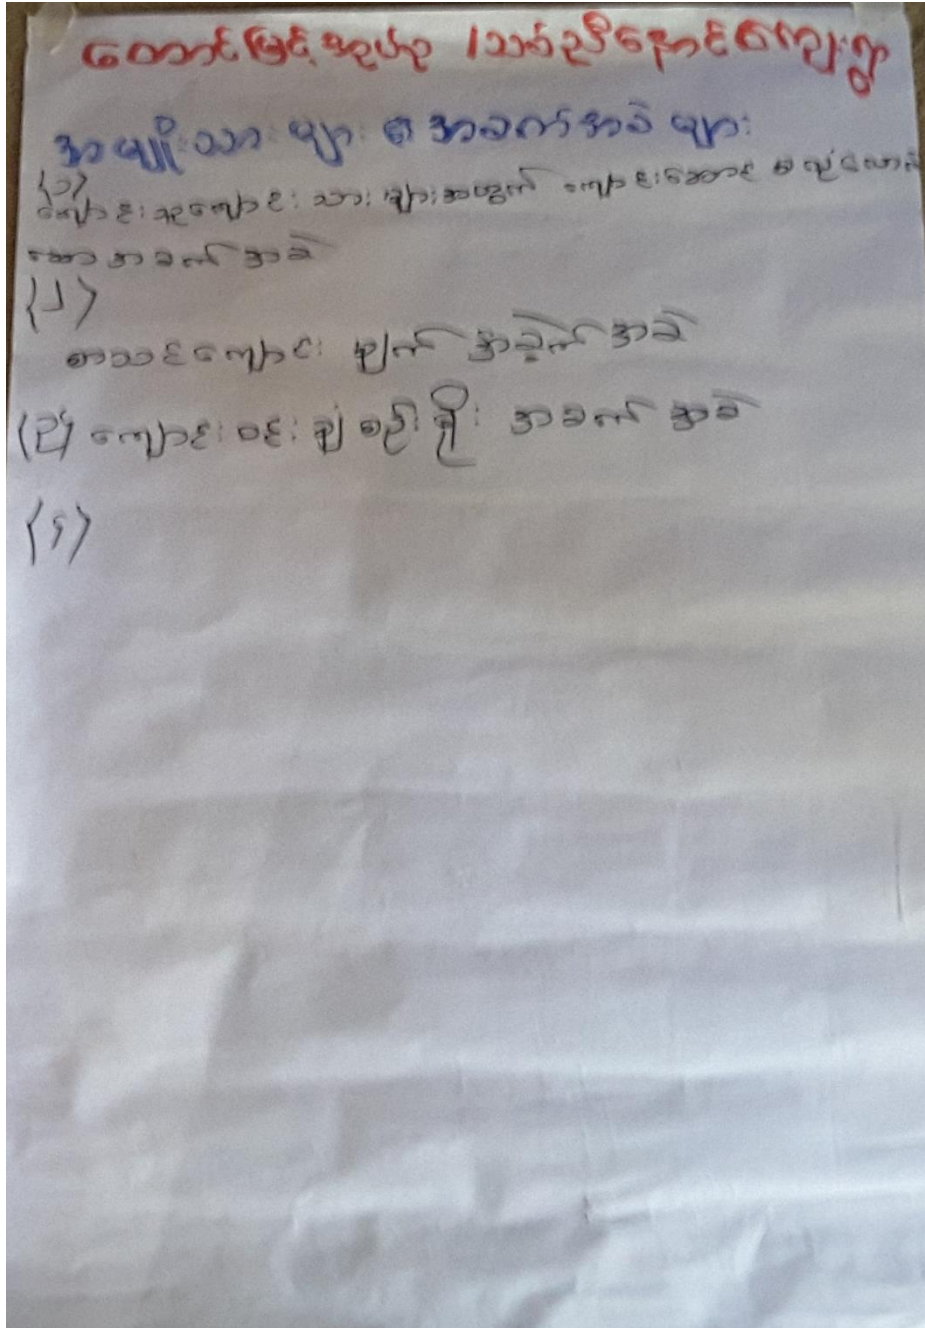 တောင်မြင့် /သစ်ညီနောင်ကျေးရွာ
အမျိုးသားများ ၏ အခက်အခဲ များ
(၁)
ကျောင်းသူကျောင်းသားများအတွက် ကျောင်းဆောင် မလုံလောက်
သော အခက်အခဲ
(၂)
စာသင်ကျောင်း မျက် အခက်အခဲ
(၃) ကျောင်းဝင်းခြံစည်းရိုး အခက်အခဲ
(၄)